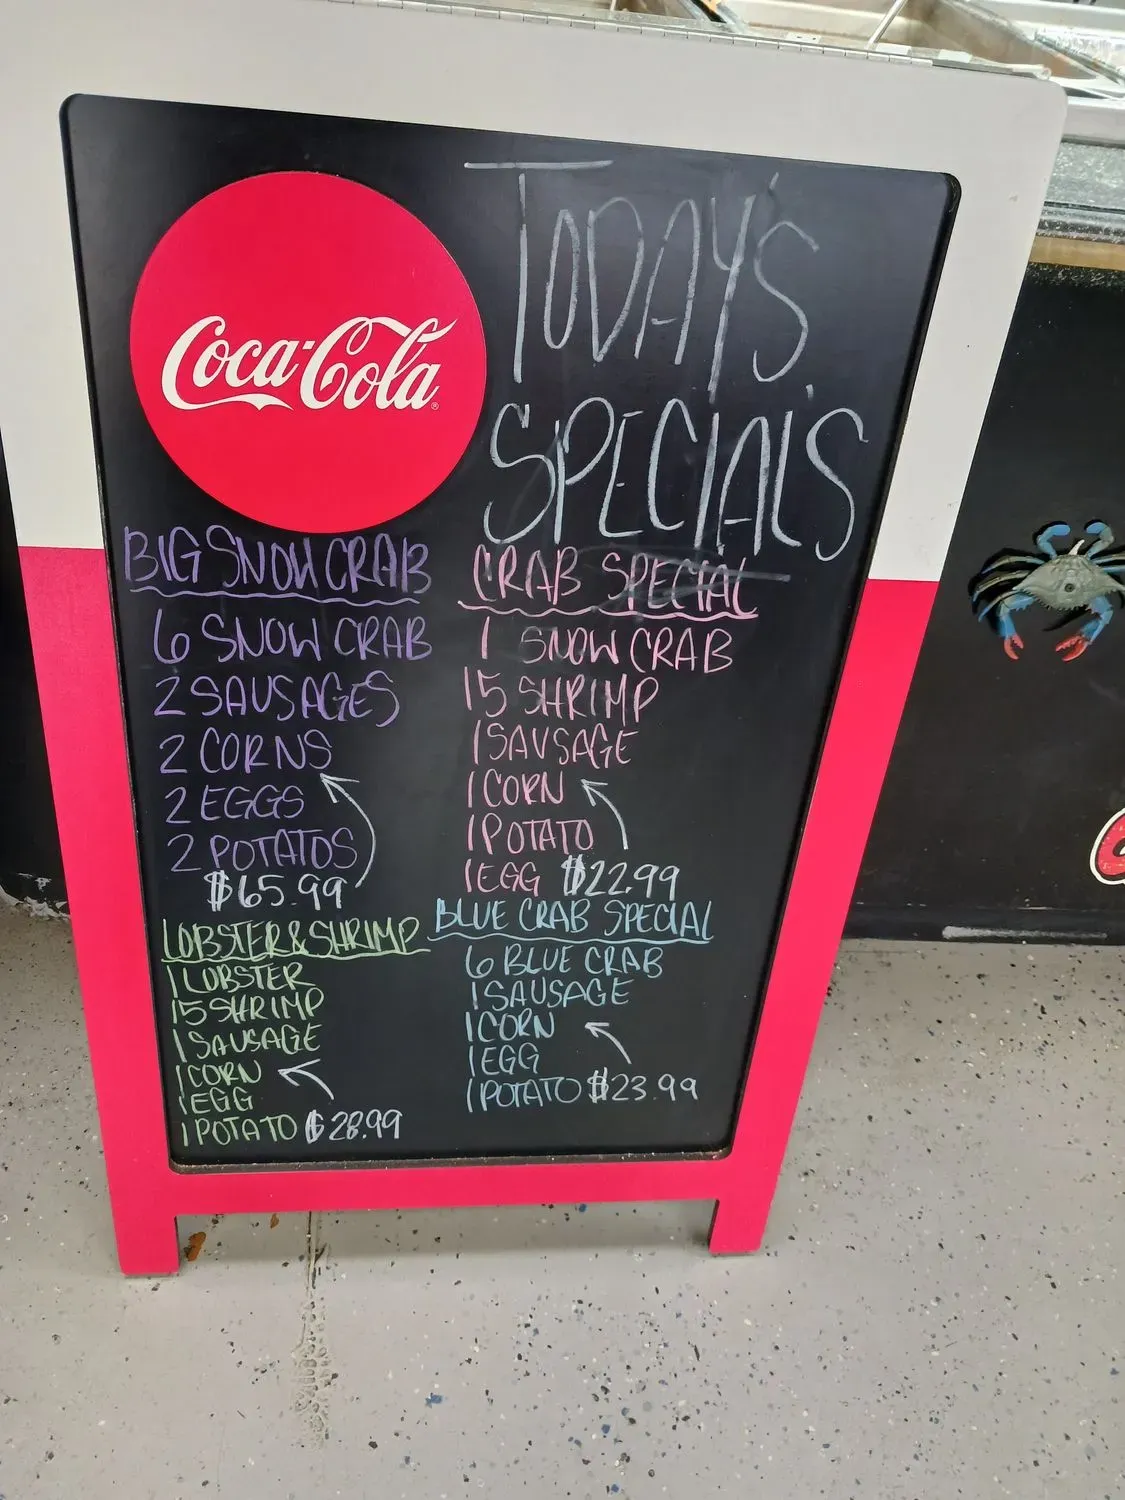 Coca-Cola
TODAY'S
SPECIAL'S
BIG SNOW CRAB
6 SNOW CRAB
2 SAUSAGES
2 CORNS
2 EGGS
2 POTATOS
$65.99
CRAB SPECIAL
1 SNOW CRAB
15 SHRIMP
1 SAUSAGE
1 CORN
1 POTATO
1 EGG $22.99
LOBSTER & SHRIMP
1 LOBSTER
15 SHRIMP
1 SAUSAGE
1 CORN
1 EGG
1 POTATO $28.99
BLUE CRAB SPECIAL
6 BLUE CRAB
1 SAUSAGE
1 CORN
1 EGG
1 POTATO $23.99